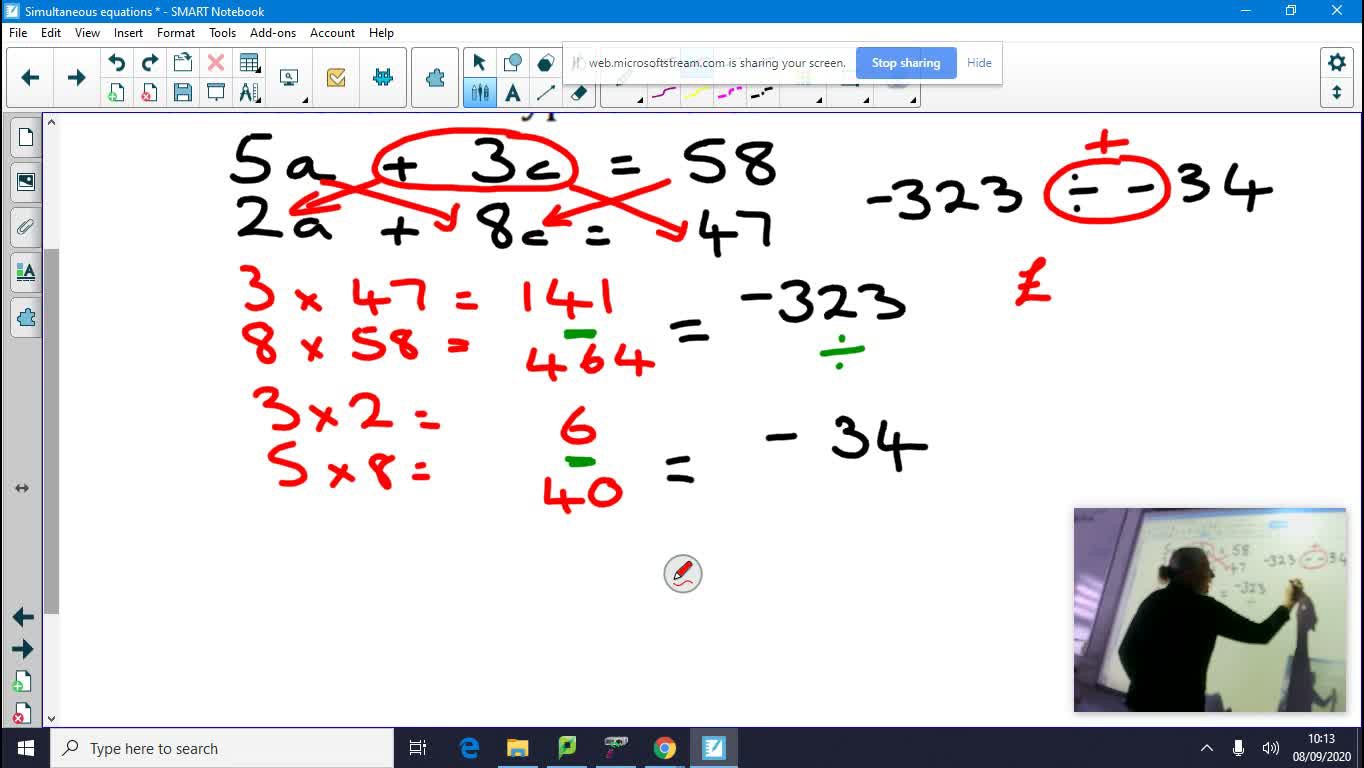 Simultaneous equations * - SMART Notebook
File Edit View Insert Format Tools Add-ons Account Help
web.microsoftstream.com is sharing your screen. Stop sharing Hide
5a + 3c = 58
2a + 8c = 47
+
-323 ÷ - 34
£
3 × 47 = 141
8 × 58 = 464
= -323
÷
3 × 2 = 6
5 × 8 = 40
= - 34
58
47
-323 - - 34
= -323
Type here to search
10:13
08/09/2020